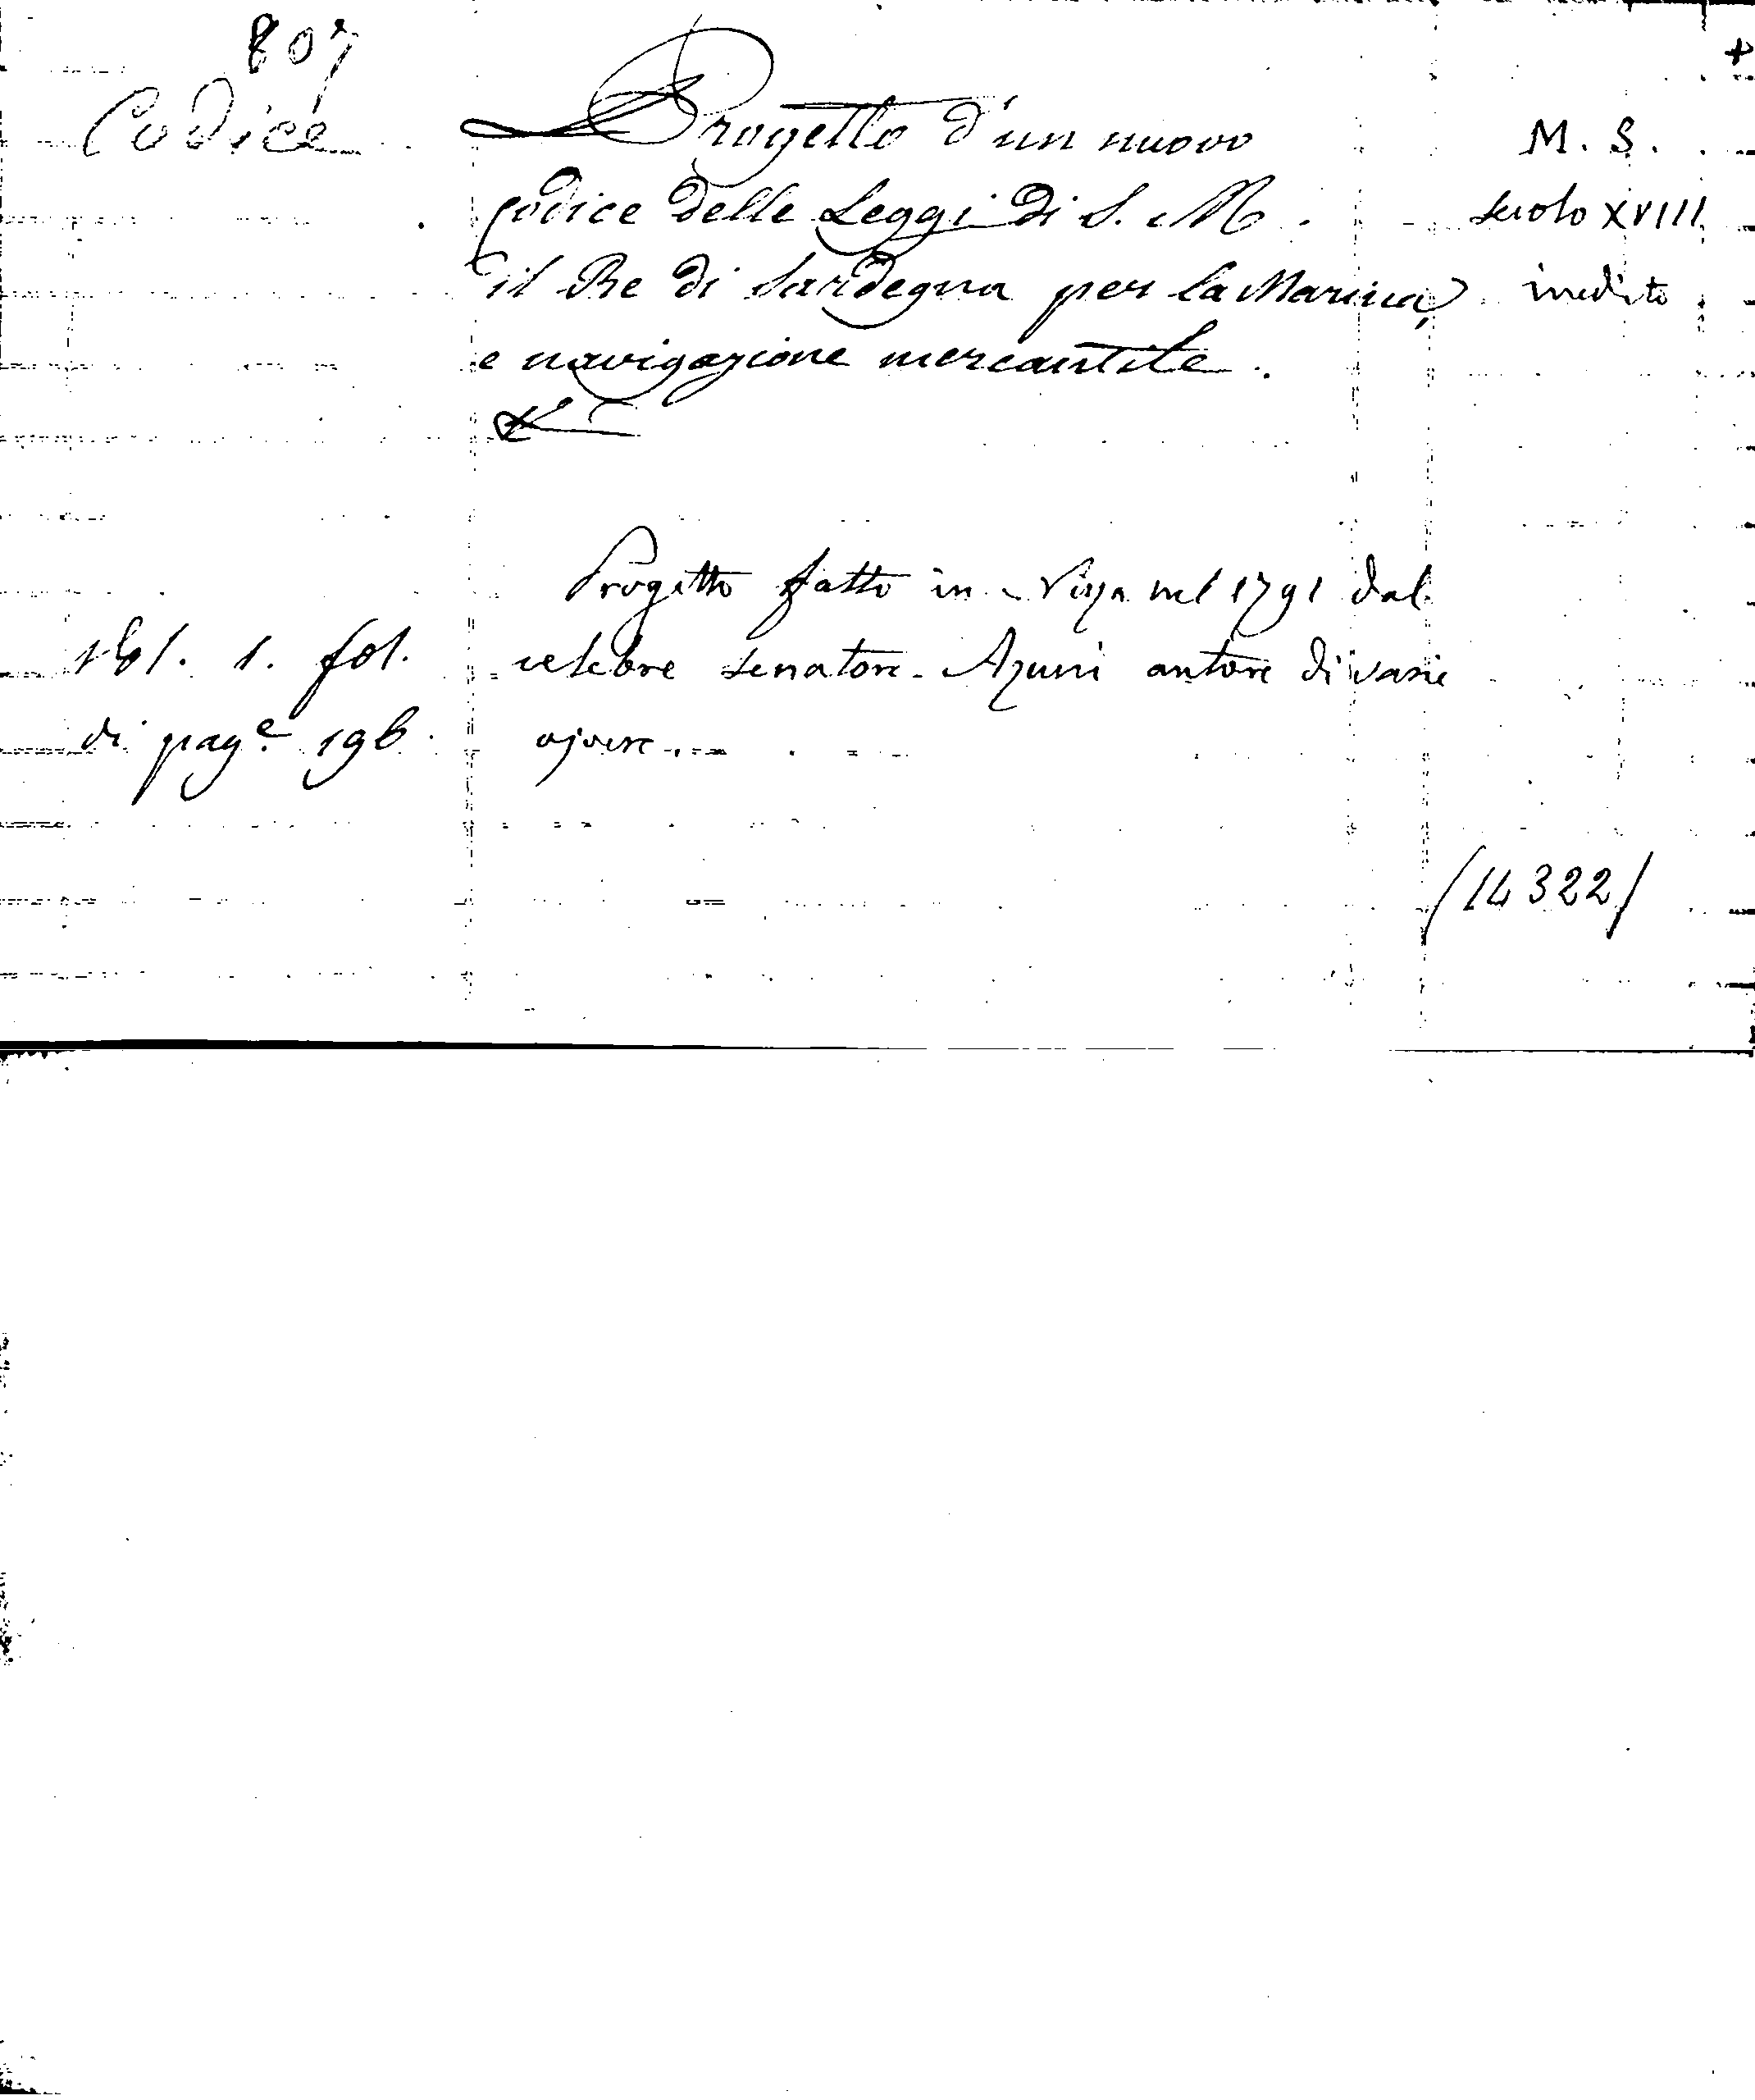 807
+
Codice
Progetto d'un nuovo
codice delle Leggi di S. M.
il Re di Sardegna per la Marina,
e navigazione mercantile.
M. S.
secolo XVIII
inedito
Progetto fatto in Nizza nel 1791 dal
celebre senatore Azuni autore di varie
opere
Vol. 1. fol.
di pag.e 196
(14322)